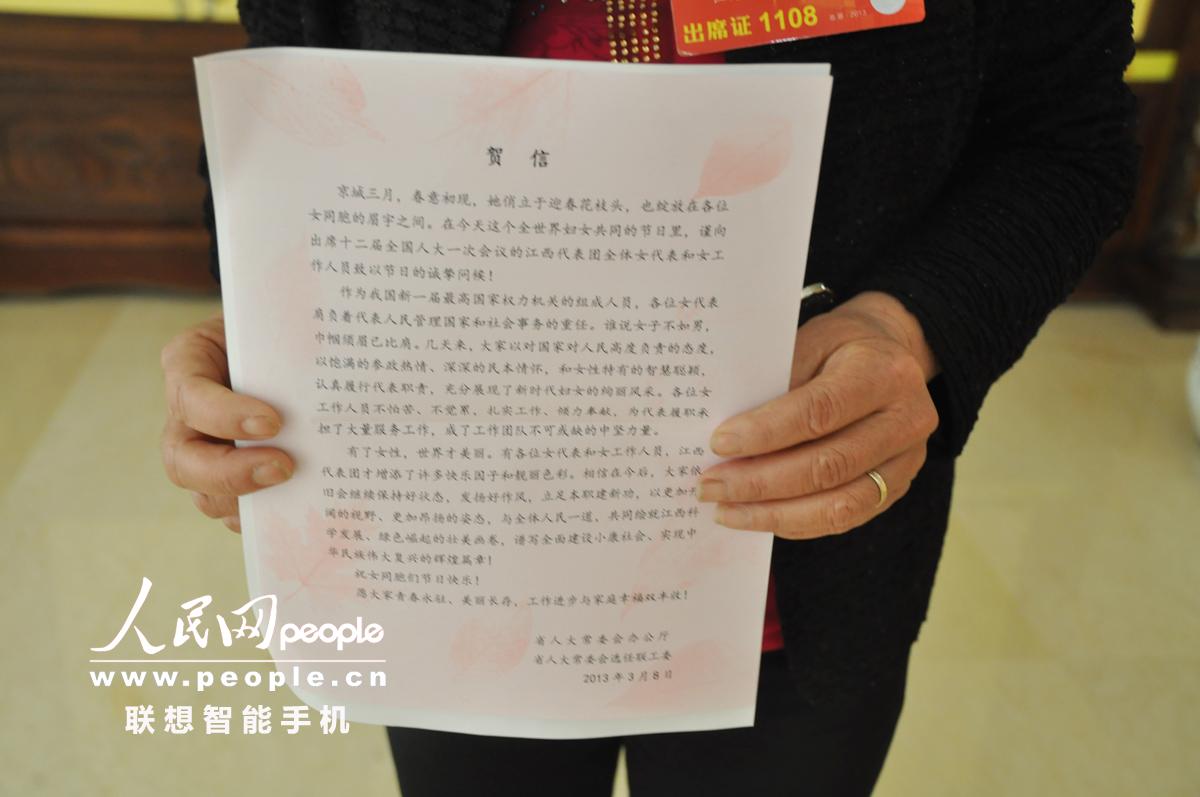 出席证 1108
贺 信
京城三月，春意初现，她俏立于迎春花枝头，也绽放在各位
女同胞的眉宇之间。在今天这个全世界妇女共同的节日里，谨向
出席十二届全国人大一次会议的江西代表团全体女代表和女工
作人员致以节日的诚挚问候！
作为我国新一届最高国家权力机关的组成人员，各位女代表
肩负着代表人民管理国家和社会事务的重任。谁说女子不如男，
巾帼须眉已比肩。几天来，大家以对国家对人民高度负责的态度，
以饱满的参政热情、深深的民本情怀，和女性特有的智慧聪颖，
认真履行代表职责，充分展现了新时代妇女的绚丽风采。各位女
工作人员不怕苦、不觉累，扎实工作、倾力奉献，为代表履职承
担了大量服务工作，成了工作团队不可或缺的中坚力量。
有了女性，世界才美丽。有各位女代表和女工作人员，江西
代表团才增添了许多快乐因子和靓丽色彩。相信在今后，大家依
旧会继续保持好状态，发扬好作风，立足本职建新功，以更加开
阔的视野、更加昂扬的姿态，与全体人民一道，共同绘就江西科
学发展、绿色崛起的壮美画卷，谱写全面建设小康社会、实现中
华民族伟大复兴的辉煌篇章！
祝女同胞们节日快乐！
愿大家青春永驻、美丽长存，工作进步与家庭幸福双丰收！
省人大常委会办公厅
省人大常委会选任联工委
2013 年 3 月 8 日
人民网 people
www.people.cn
联想智能手机